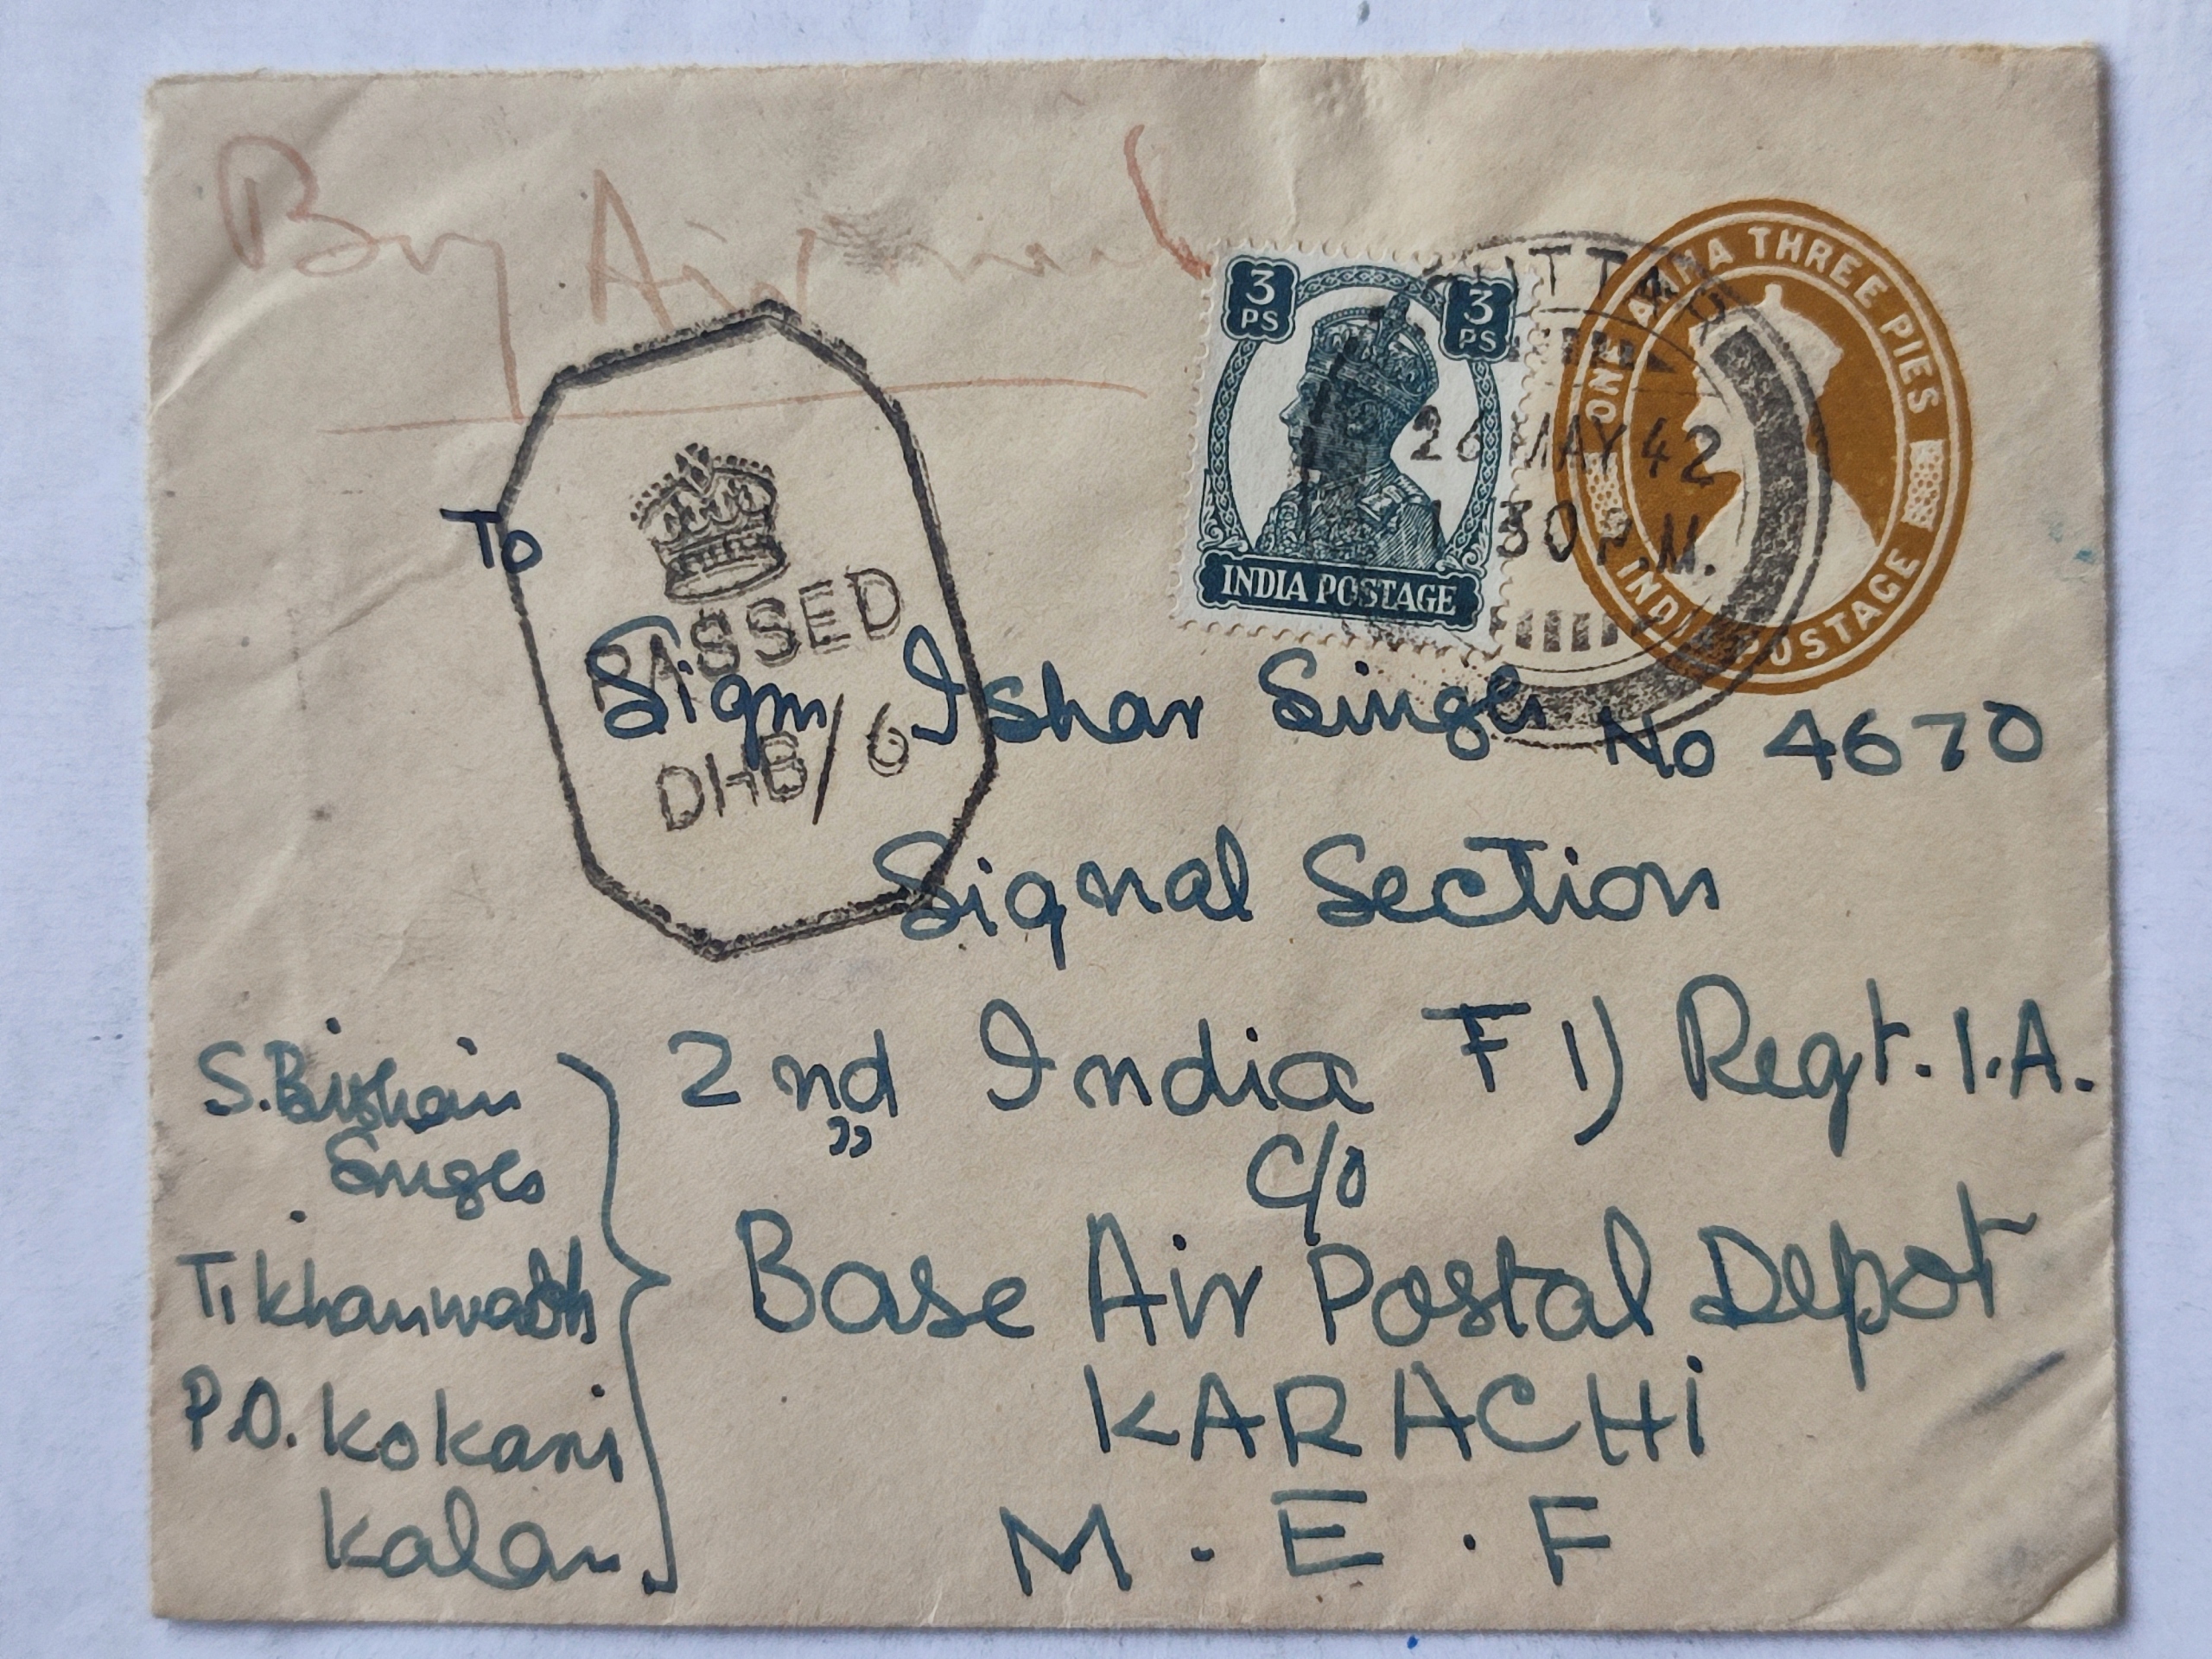 By Air mail
3 PS
3 PS
INDIA POSTAGE
ONE ANNA THREE PIES
INDIA POSTAGE
26 MAY 42
1 30 P.M.
To
PASSED
DHB/6
Sigm Ishar Singh No 4670
Signal Section
2nd India F 1) Regt. I.A.
C/o
Base Air Postal Depot
KARACHI
M. E. F
S. Bishan
Singh
Tikhanwadh
P.O. Kokani
Kalan